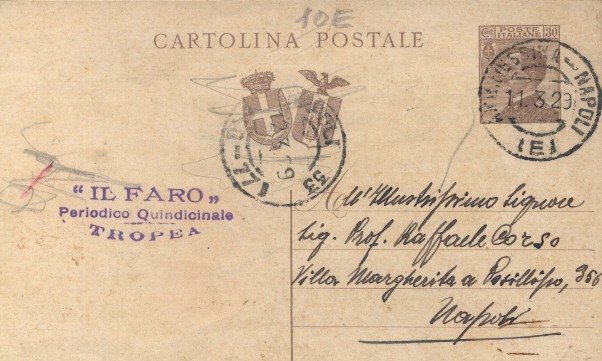 10E
CARTOLINA POSTALE
POSTE
ITALIANE
30
NAPOLI
11.3.29
(E)
53
"IL FARO"
Periodico Quindicinale
TROPEA
All'Illustrissimo Signore
Sig. Prof. Raffaele Corso
Villa Margherita a Posillipo, 356
Napoli